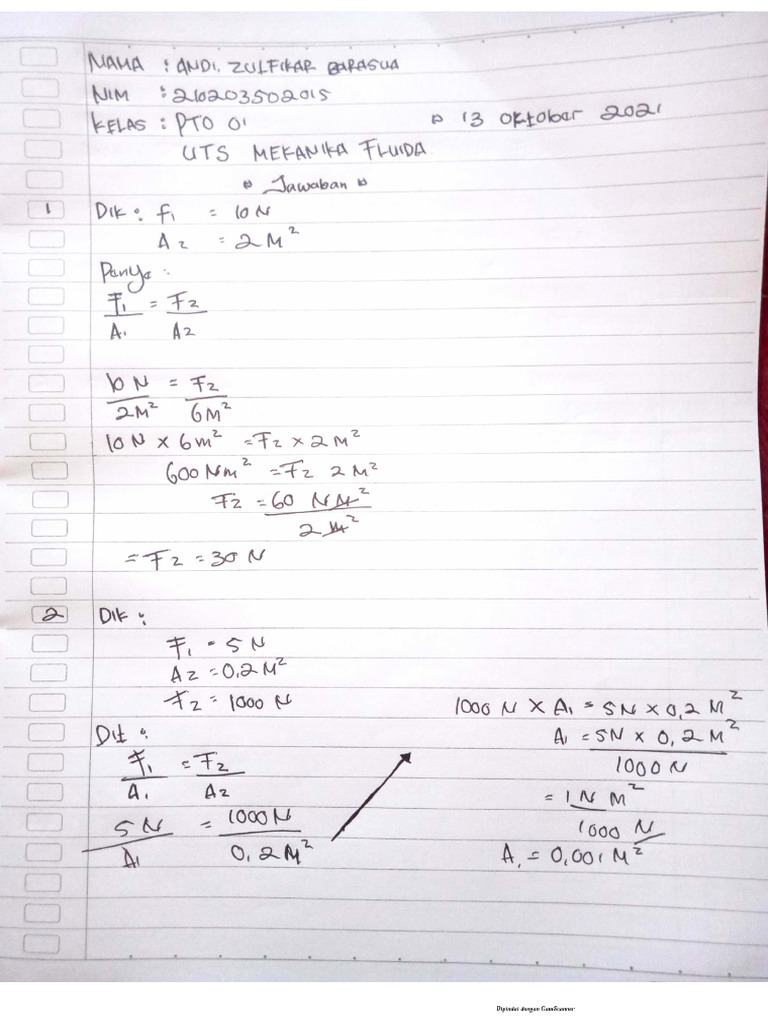 NAMA : ANDI. ZULFIKAR BARASUA
NIM : 210203502015
KELAS : PTO 01
13 Oktober 2021
UTS MEKANIKA FLUIDA
Jawaban
1 Dik : f₁ = 10 N
A₂ = 2 M²
Penye :
F₁/A₁ = F₂/A₂
10 N/2M² = F₂/6M²
10 N x 6m² = F₂ x 2 M²
600 Nm² = F₂ 2 M²
F₂ = 60 NM²/2 M²
= F₂ = 30 N
2 Dik :
F₁ = 5 N
A₂ = 0,2 M²
F₂ = 1000 N
Dit :
F₁/A₁ = F₂/A₂
5 N/A₁ = 1000 N/0,2 M²
1000 N X A₁ = 5N x 0,2 M²
A₁ = 5N x 0,2 M²/1000 N
= 1 N M²/1000 N
A₁ = 0,001 M²
Dipindai dengan CamScanner